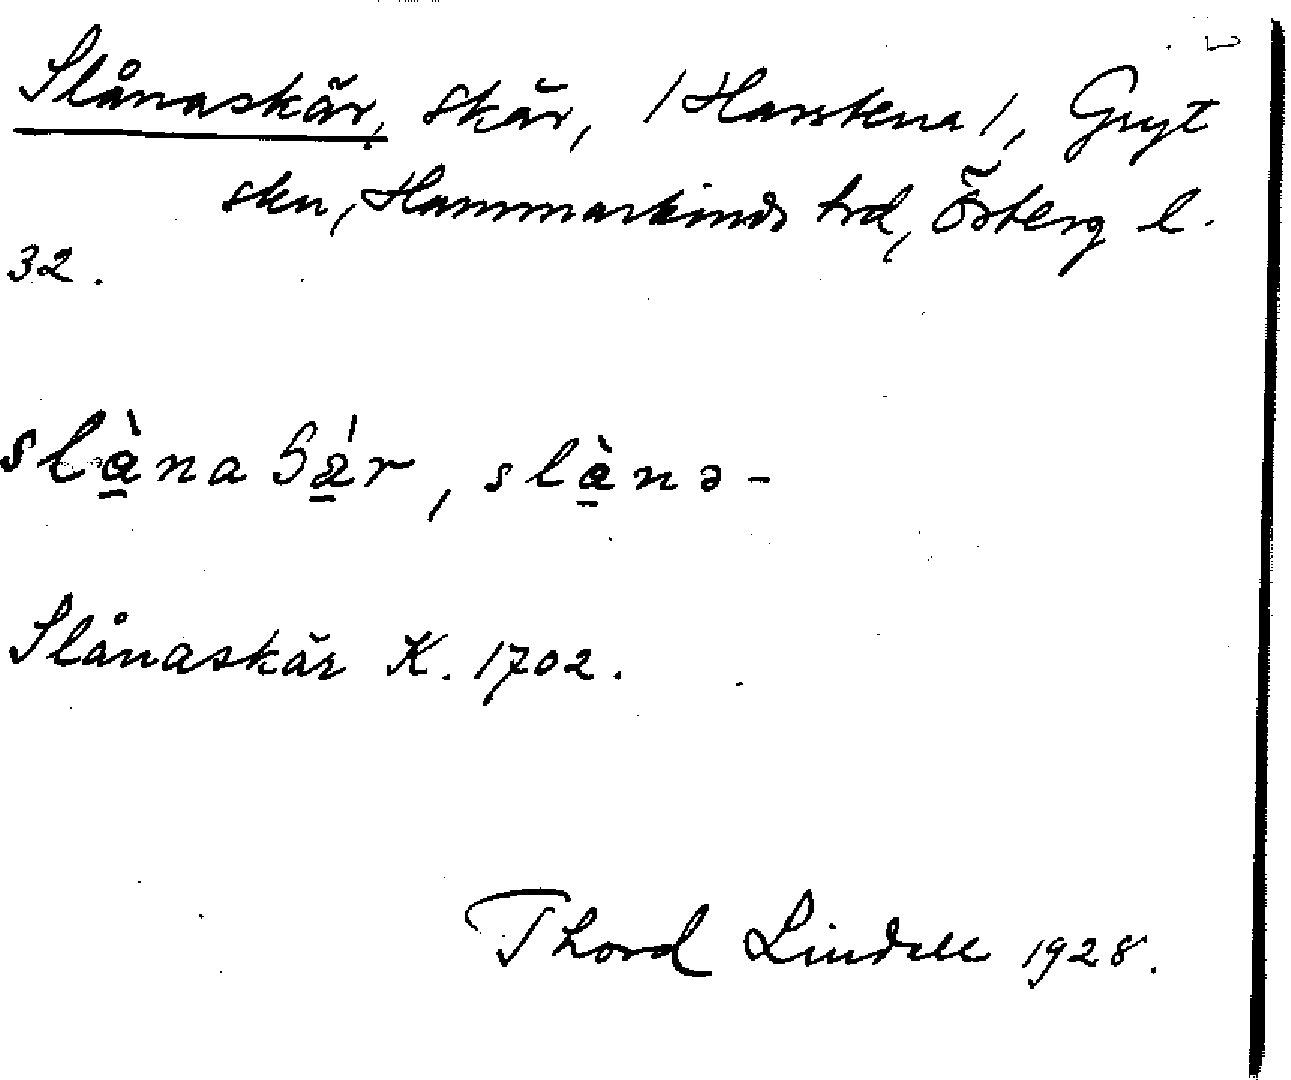 Slånaskär, skär, /Harstena/, Gryt
skn, Hammarkinds hd, Österg l.
32.
slàna Sä́r, slànə-
Slånaskär K. 1702.
Thord Lindell 1928.